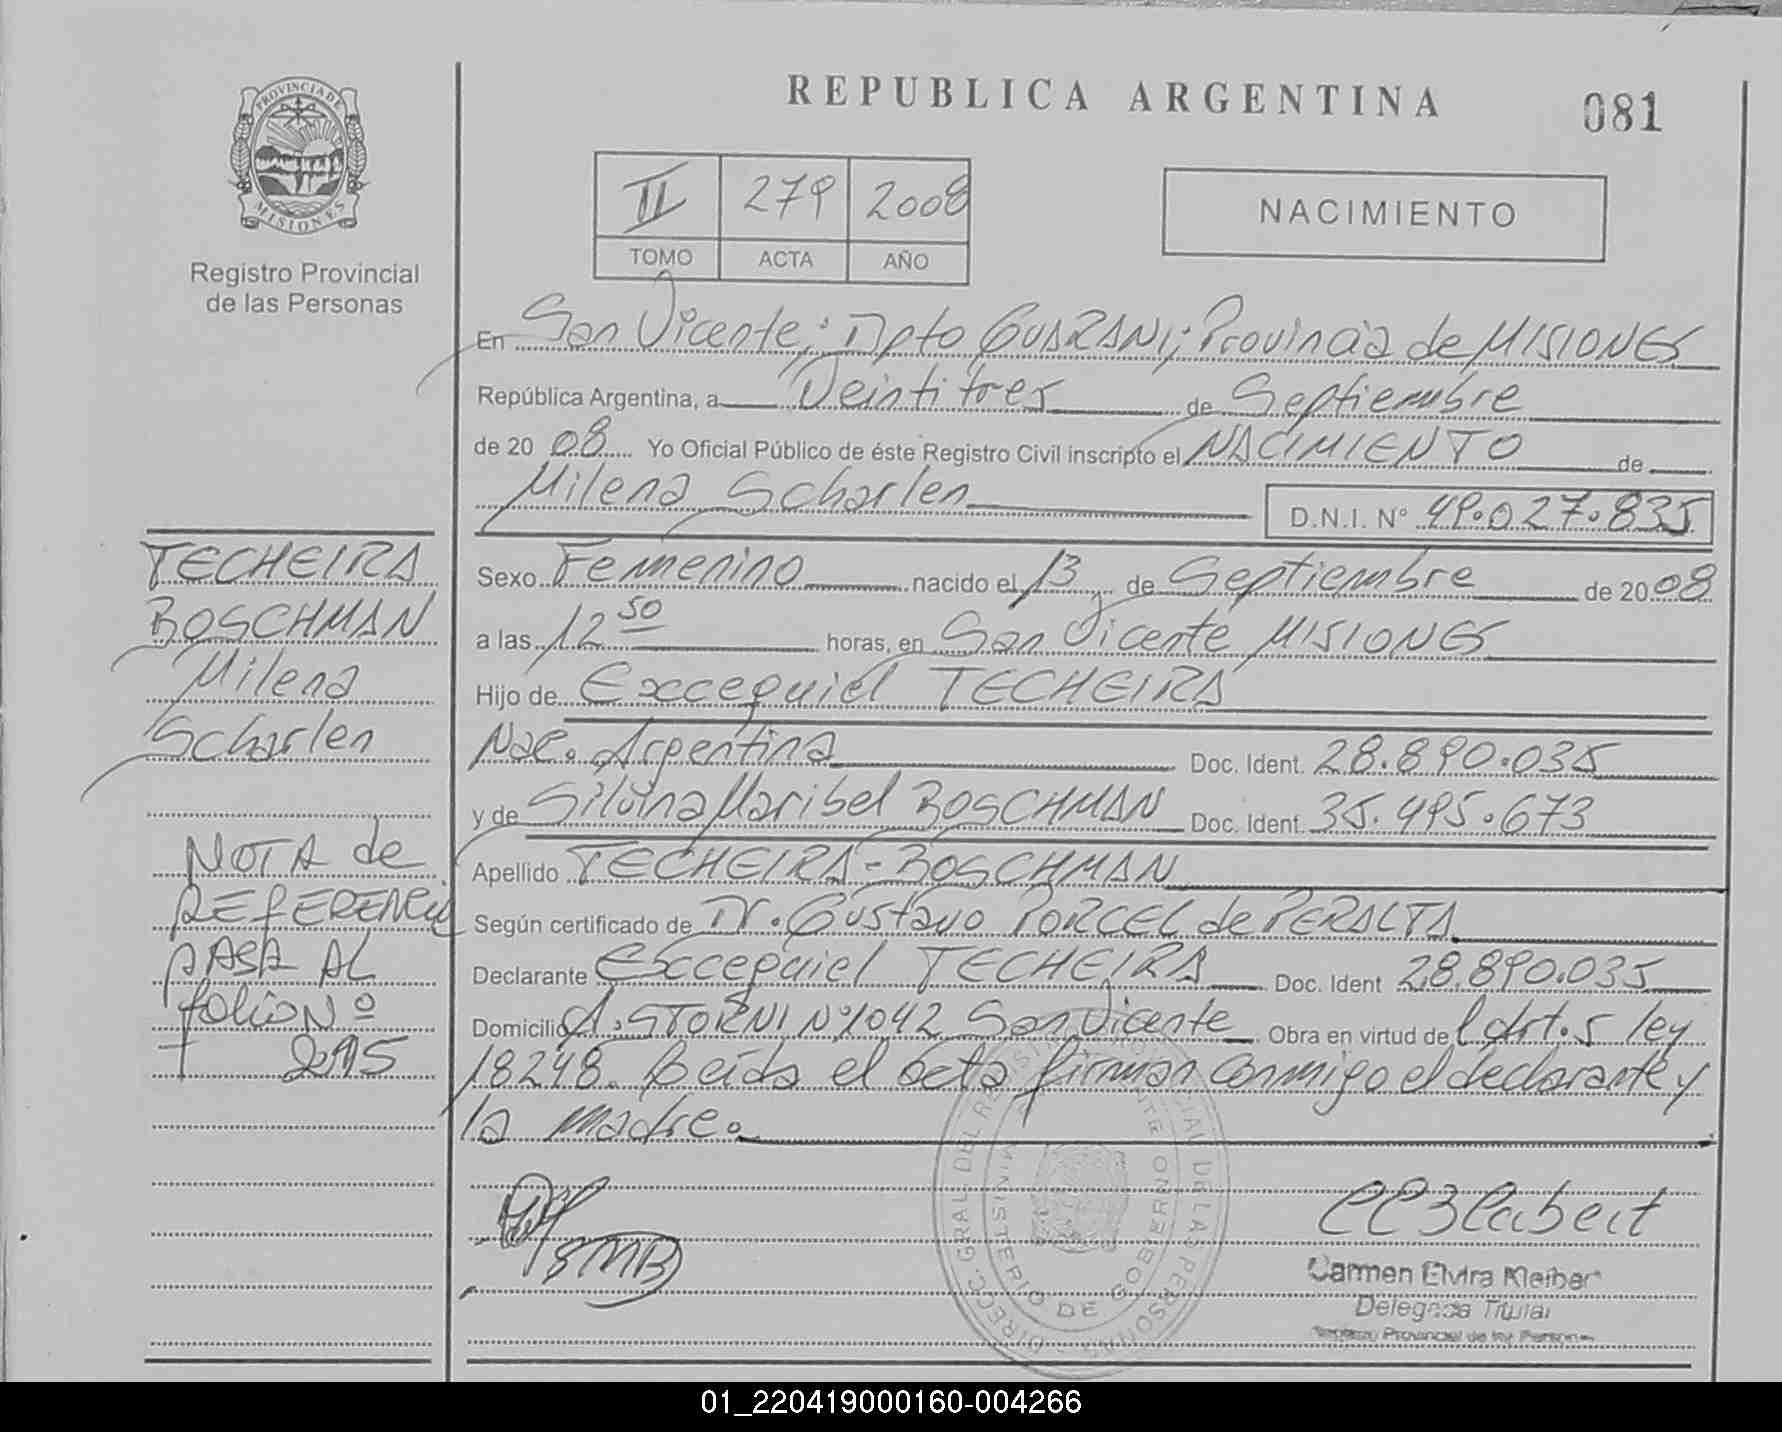 REPUBLICA ARGENTINA
081
PROVINCIA DE
MISIONES
Registro Provincial
de las Personas
II 279 2008
TOMO ACTA AÑO
NACIMIENTO
En San Vicente; Dpto GUARANI; Provincia de MISIONES
República Argentina, a Veintitres de Septiembre
de 20 08 Yo Oficial Público de éste Registro Civil inscripto el NACIMIENTO de
Milena Scharlen D.N.I. Nº 49.027.835
Sexo Femenino nacido el 13 de Septiembre de 20 08
a las 12 50 horas, en San Vicente MISIONES
Hijo de Exccequiel TECHEIRA
Nac. Argentina Doc. Ident. 28.890.035
y de Silvina Maribel BOSCHMAN Doc. Ident. 35.495.673
Apellido TECHEIRA-BOSCHMAN
Según certificado de Dr. Gustavo PORCEL de PERALTA
Declarante Exccequiel TECHEIRA Doc. Ident 28.890.035
Domicilio A. STORNI Nº 1042 San Vicente Obra en virtud de l Art. 5 ley
18248. Leída el acta firman conmigo el declarante y
la madre.
TECHEIRA
BOSCHMAN
Milena
Scharlen
NOTA de
REFERENCIA
PASA AL
folio Nº
SMB
DIRECC. GRAL. DEL REGISTRO PROVINCIAL DE LAS PERSONAS
MINISTERIO DE GOBERNO
Carmen Elvira Kleiber
Delegada Titular
Registro Provincial de las Personas
01_220419000160-004266